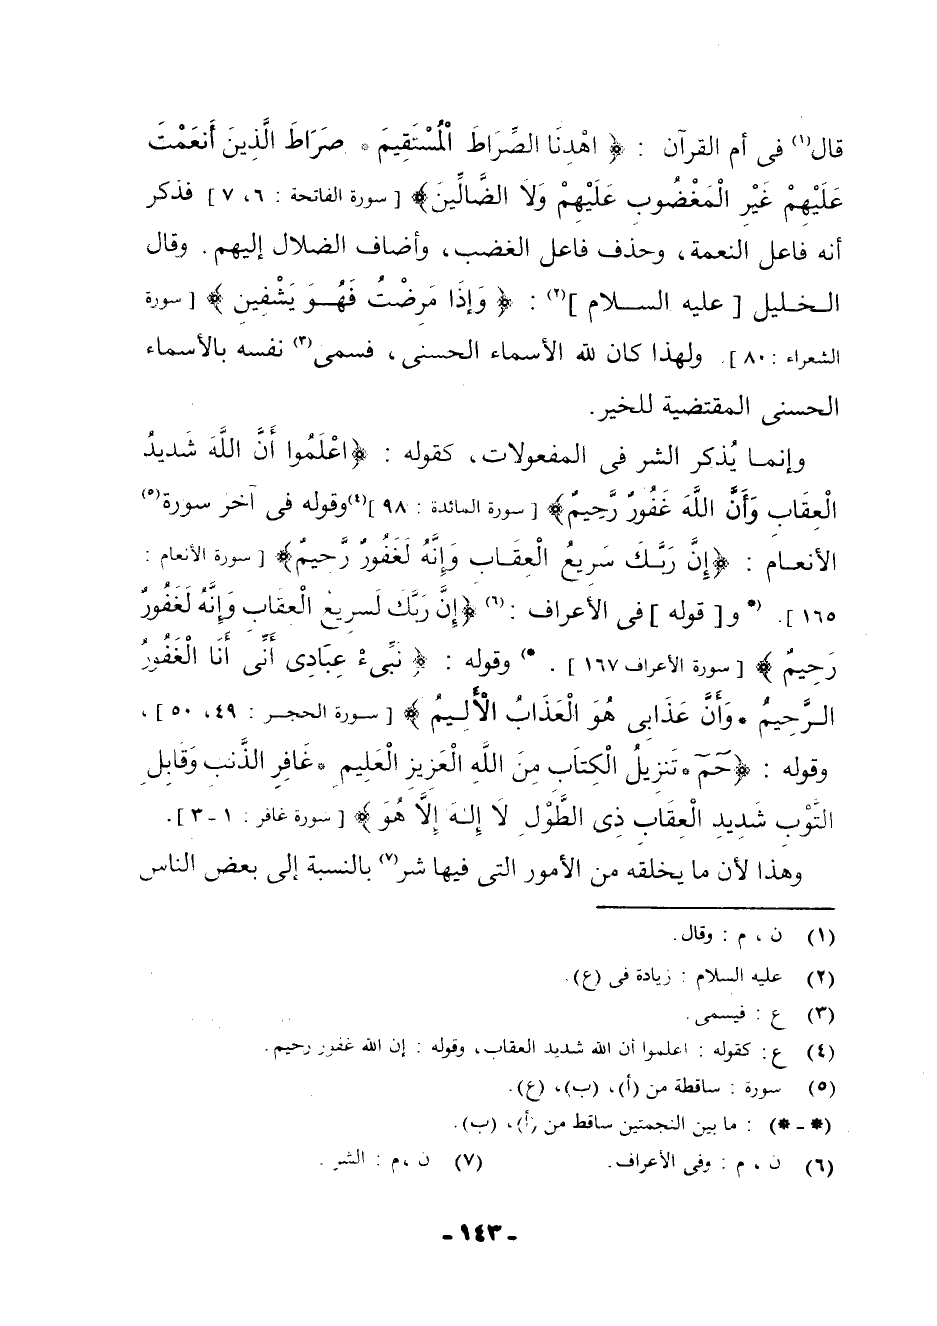 قال(١) فى أم القرآن : ﴿ اهْدِنَا الصِّرَاطَ الْمُسْتَقِيمَ * صِرَاطَ الَّذِينَ أَنعَمْتَ
عَلَيْهِمْ غَيْرِ الْمَغْضُوبِ عَلَيْهِمْ وَلَا الضَّالِّينَ﴾ [ سورة الفاتحة : ٦، ٧ ] فذكر
أنه فاعل النعمة، وحذف فاعل الغضب، وأضاف الضلال إليهم . وقال
الخليل [ عليه السلام ](٢) : ﴿ وَإِذَا مَرِضْتُ فَهُوَ يَشْفِينِ ﴾ [ سورة
الشعراء : ٨٠ ]. ولهذا كان لله الأسماء الحسنى ، فسمى(٣) نفسه بالأسماء
الحسنى المقتضية للخير.
وإنما يُذكر الشر فى المفعولات، كقوله : ﴿اعْلَمُوا أَنَّ اللَّهَ شَدِيدُ
الْعِقَابِ وَأَنَّ اللَّهَ غَفُورٌ رَّحِيمٌ﴾ [ سورة المائدة : ٩٨ ](٤)وقوله فى آخر سورة(٥)
الأنعام : ﴿إِنَّ رَبَّكَ سَرِيعُ الْعِقَابِ وَإِنَّهُ لَغَفُورٌ رَّحِيمٌ﴾ [ سورة الأنعام :
١٦٥ ]. (* و[ قوله ] فى الأعراف :(٦) ﴿إِنَّ رَبَّكَ لَسَرِيعُ الْعِقَابِ وَإِنَّهُ لَغَفُورٌ
رَحِيمٌ ﴾ [ سورة الأعراف ١٦٧ ] . *) وقوله : ﴿ نَبِّىءْ عِبَادِى أَنِّى أَنَا الْغَفُورُ
الرَّحِيمُ * وَأَنَّ عَذَابِى هُوَ الْعَذَابُ الْأَلِيمُ ﴾ [ سورة الحجر : ٤٩، ٥٠ ]،
وقوله : ﴿حَمَ * تَنزِيلُ الْكِتَابِ مِنَ اللَّهِ الْعَزِيزِ الْعَلِيمِ * غَافِرِ الذَّنبِ وَقَابِلِ
التَّوْبِ شَدِيدِ الْعِقَابِ ذِى الطَّوْلِ لَا إِلَهَ إِلَّا هُوَ ﴾ [ سورة غافر : ١ - ٣ ].
وهذا لأن ما يخلقه من الأمور التى فيها شر(٧) بالنسبة إلى بعض الناس
(١) ن ، م : وقال.
(٢) عليه السلام : زيادة فى (ع).
(٣) ع : فيسمى.
(٤) ع: كقوله : اعلموا أن الله شديد العقاب، وقوله : إن الله غفور رحيم.
(٥) سورة : ساقطة من (أ)، (ب)، (ع).
(* - *) : ما بين النجمتين ساقط من (أ)، (ب).
(٦) ن ، م : وفى الأعراف. (٧) ن ،م : الشر .
- ١٤٣ -